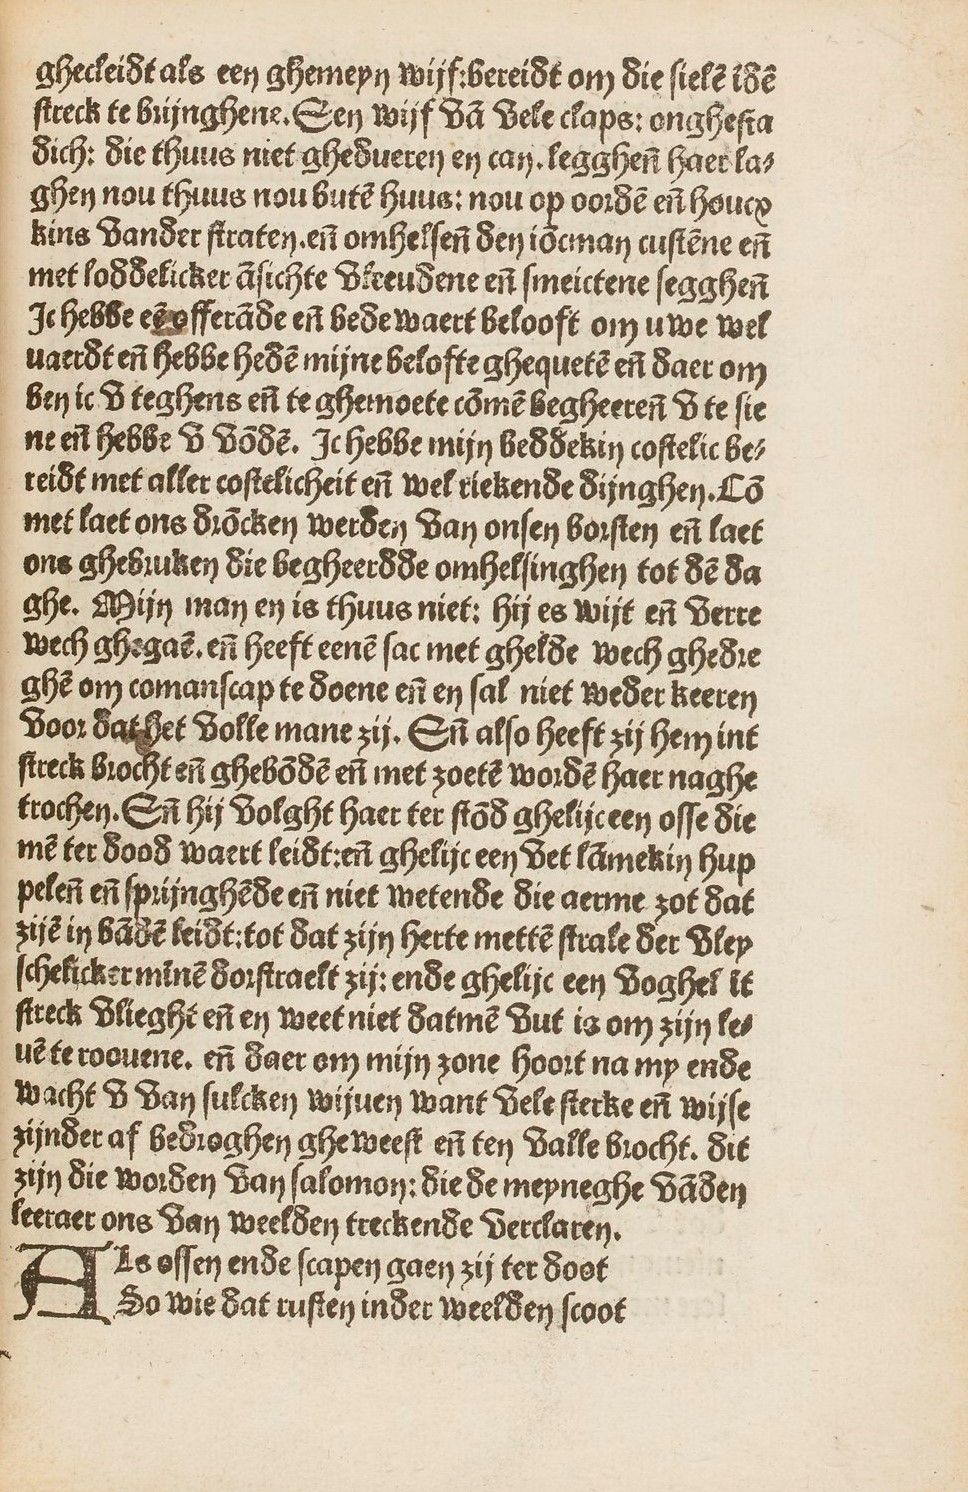 ghecleidt als een ghemeyn wijf: bereidt om die sielē īdē
streck te brijnghene. Een wijf vā vele claps: onghesta
dich: die thuus niet ghedueren en can. legghen̄ haer la⸗
ghen nou thuus nou butē huus: nou op oordē en̄ houcx
kins vander straten. en̄ omhelsen̄ den iōcman custēne en̄
met loddelicker āsichte vleeudene en̄ smeictene segghen̄
Ic hebbe eē offerāde en̄ bedewaert belooft om uwe wel
uaerdt en̄ hebbe hedē mijne belofte ghequetē en̄ daer om
ben ic v teghens en̄ te ghemoete cōmē begheeren̄ v te sie
ne en̄ hebbe v vōdē. Ic hebbe mijn beddekin costelic be⸗
reidt met aller costelicheit en̄ wel riekende dijnghen. Cō
met laet ons drōcken werden van onsen borsten en̄ laet
ons ghebruken die begheerdde omhelsinghen tot dē da
ghe. Mijn man en is thuus niet: hij es wijt en̄ verre
wech ghegaē. en̄ heeft eenē sac met ghelde wech ghedre
ghē om comanscap te doene en̄ en sal niet weder keeren
voor dat het volle mane zij. En̄ also heeft zij hem int
streck brocht en̄ ghebōdē en̄ met zoetē wordē haer naghe
trochen. En̄ hij volght haer ter stōd ghelijc een osse die
mē ter dood waert leidt: en̄ ghelijc een vet lāmekin hup
pelen̄ en̄ sprijnghēde en̄ niet wetende die aerme zot dat
zijē in bādē leidt: tot dat zijn herte mettē strale der vley
schelicker mīnē dorstraelt zij: ende ghelijc een voghel īt
streck vlieght en̄ en weet niet datmē vut is om zijn le⸗
uē te roouene. en̄ daer om mijn zone hoort na my ende
wacht v van sulcken wijuen want vele sterke en̄ wijse
zijnder af bedroghen gheweest en̄ ten valle brocht. dit
zijn die worden van salomon: die de meyneghe vāden
leeraer ons van weelden treckende verclaren.
Als ossen ende scapen gaen zij ter doot
So wie dat rusten inder weelden scoot